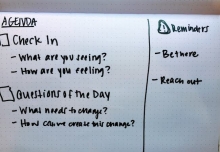 AGENDA
Check In
- What are you seeing?
- How are you feeling?
Questions of the Day
- What needs to change?
- How can we create this change?
! Reminders
- Be there
- Reach out